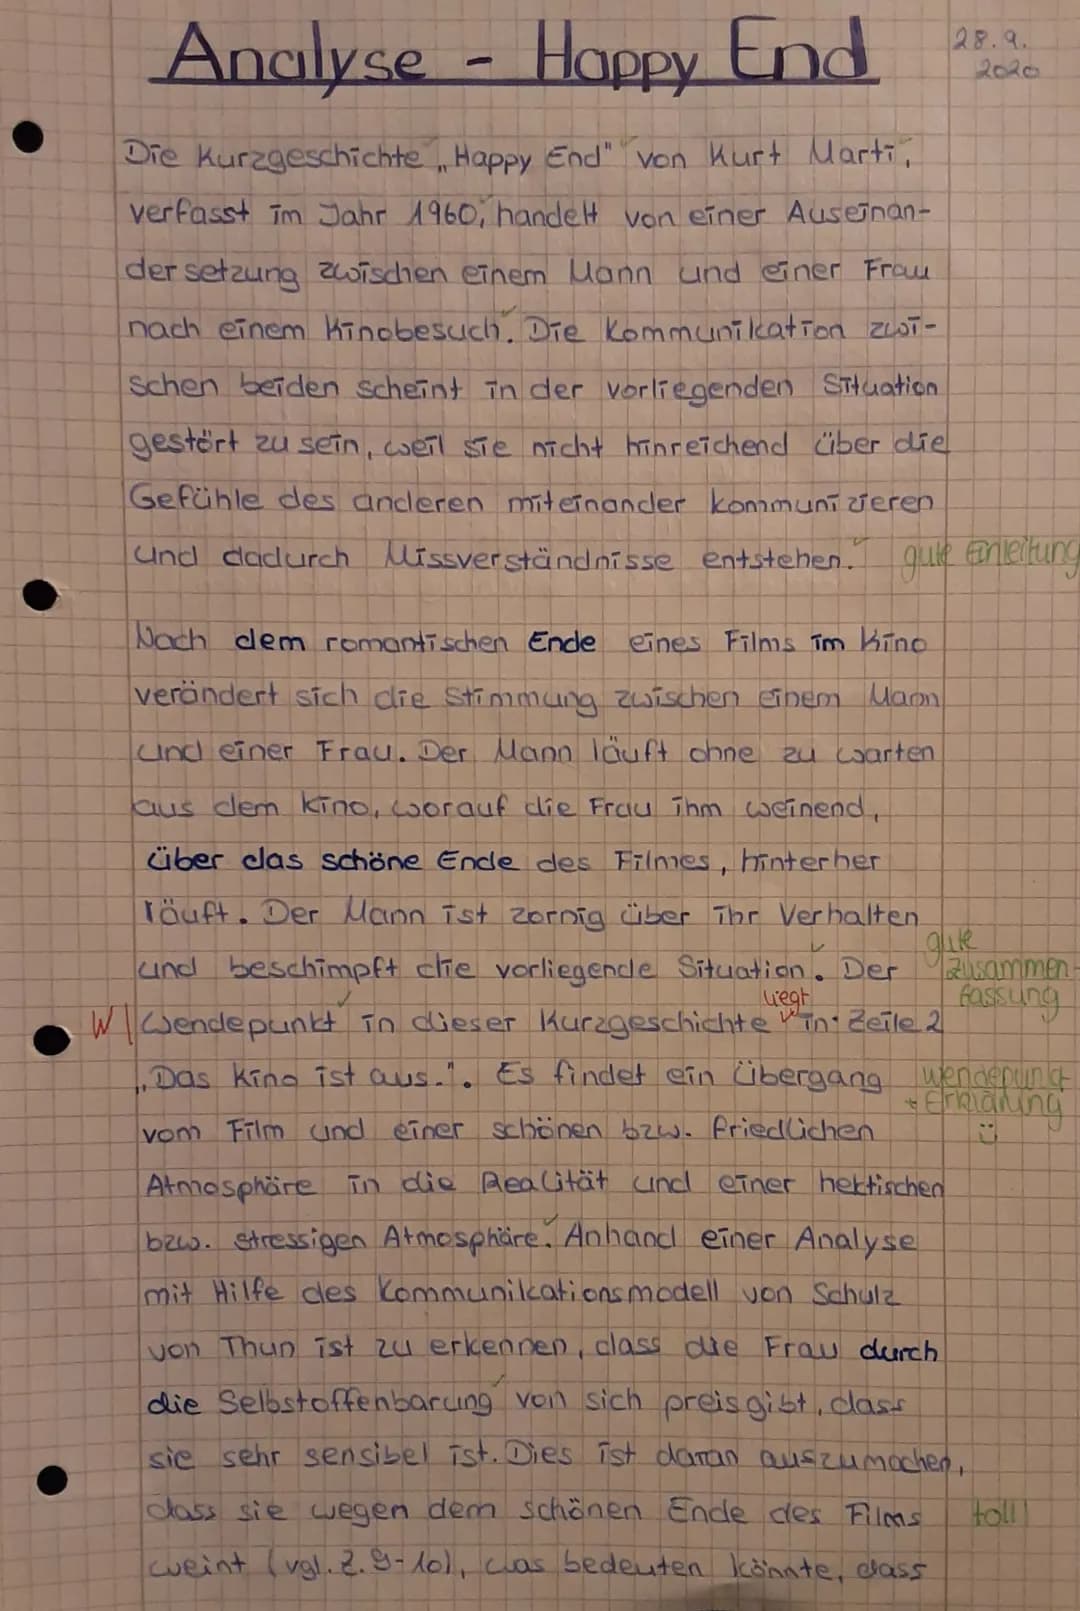 Analyse - Happy End
28.9.
2020
Die Kurzgeschichte „Happy End" von Kurt Marti,
verfasst im Jahr 1960, handelt von einer Auseinan-
dersetzung zwischen einem Mann und einer Frau
nach einem Kinobesuch. Die Kommunikation zwi-
schen beiden scheint in der vorliegenden Situation
gestört zu sein, weil sie nicht hinreichend über die
Gefühle des anderen miteinander kommunizieren
und dadurch Missverständnisse entstehen. gute Einleitung
Nach dem romantischen Ende eines Films im Kino
verändert sich die Stimmung zwischen einem Mann
und einer Frau. Der Mann läuft ohne zu warten
aus dem Kino, worauf die Frau ihm weinend,
über das schöne Ende des Filmes, hinterher
läuft. Der Mann ist zornig über ihr Verhalten
und beschimpft die vorliegende Situation. Der
gute
Zusammen-
fassung
W | Wendepunkt in dieser Kurzgeschichte liegt in Zeile 2
„Das Kino ist aus.". Es findet ein Übergang
Wendepunkt
+ Erklärung
vom Film und einer schönen bzw. friedlichen
Atmosphäre in die Realität und einer hektischen
bzw. stressigen Atmosphäre. Anhand einer Analyse
mit Hilfe des Kommunikationsmodell von Schulz
von Thun ist zu erkennen, dass die Frau durch
die Selbstoffenbarung von sich preisgibt, dass
sie sehr sensibel ist. Dies ist daran auszumachen,
dass sie wegen dem schönen Ende des Films toll!
weint (vgl. Z. 9-10), was bedeuten könnte, dass